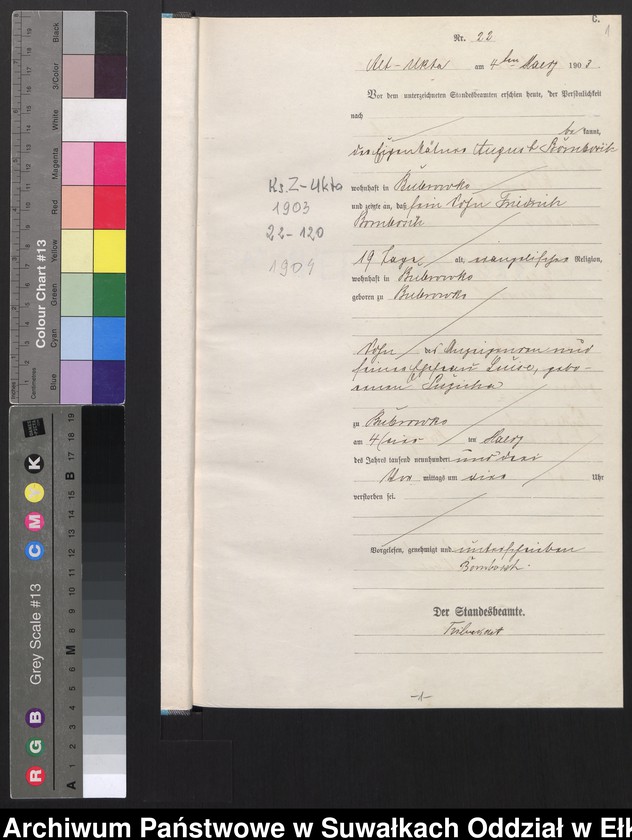 C.
1
Nr. 22
Alt-Ukta am 4ten Maerz 1903.
Vor dem unterzeichneten Standesbeamten erschien heute, der Persönlichkeit
nach
be kannt,
der Eigenkätner August
wohnhaft in Bubrowko
und zeigte an, daß sein Sohn Friedrich
19 Tage alt, evangelischer Religion,
wohnhaft in Bubrowko
geboren zu Bubrowko
Sohn des Anzeigenden und
seiner Ehefrau Luise, gebo-
renen
zu Bubrowko
am 4/vier ten Maerz
des Jahres tausend neunhundert und drei
Vor mittags um Uhr
verstorben sei.
Vorgelesen, genehmigt und unterschrieben
Der Standesbeamte.
-1-
Ks. Z-Ukta
1903
22-120
1904
Colour Chart #13
Blue
Cyan
Green
Yellow
Red
Magenta
White
3/Color
Black
Centimetres
Grey Scale #13
R G B
C M Y K
A 1 2 3 4 5 6 M 8 9 10 11 12 13 14 15 B 17 18 19
Archiwum Państwowe w Suwałkach Oddział w Ełk